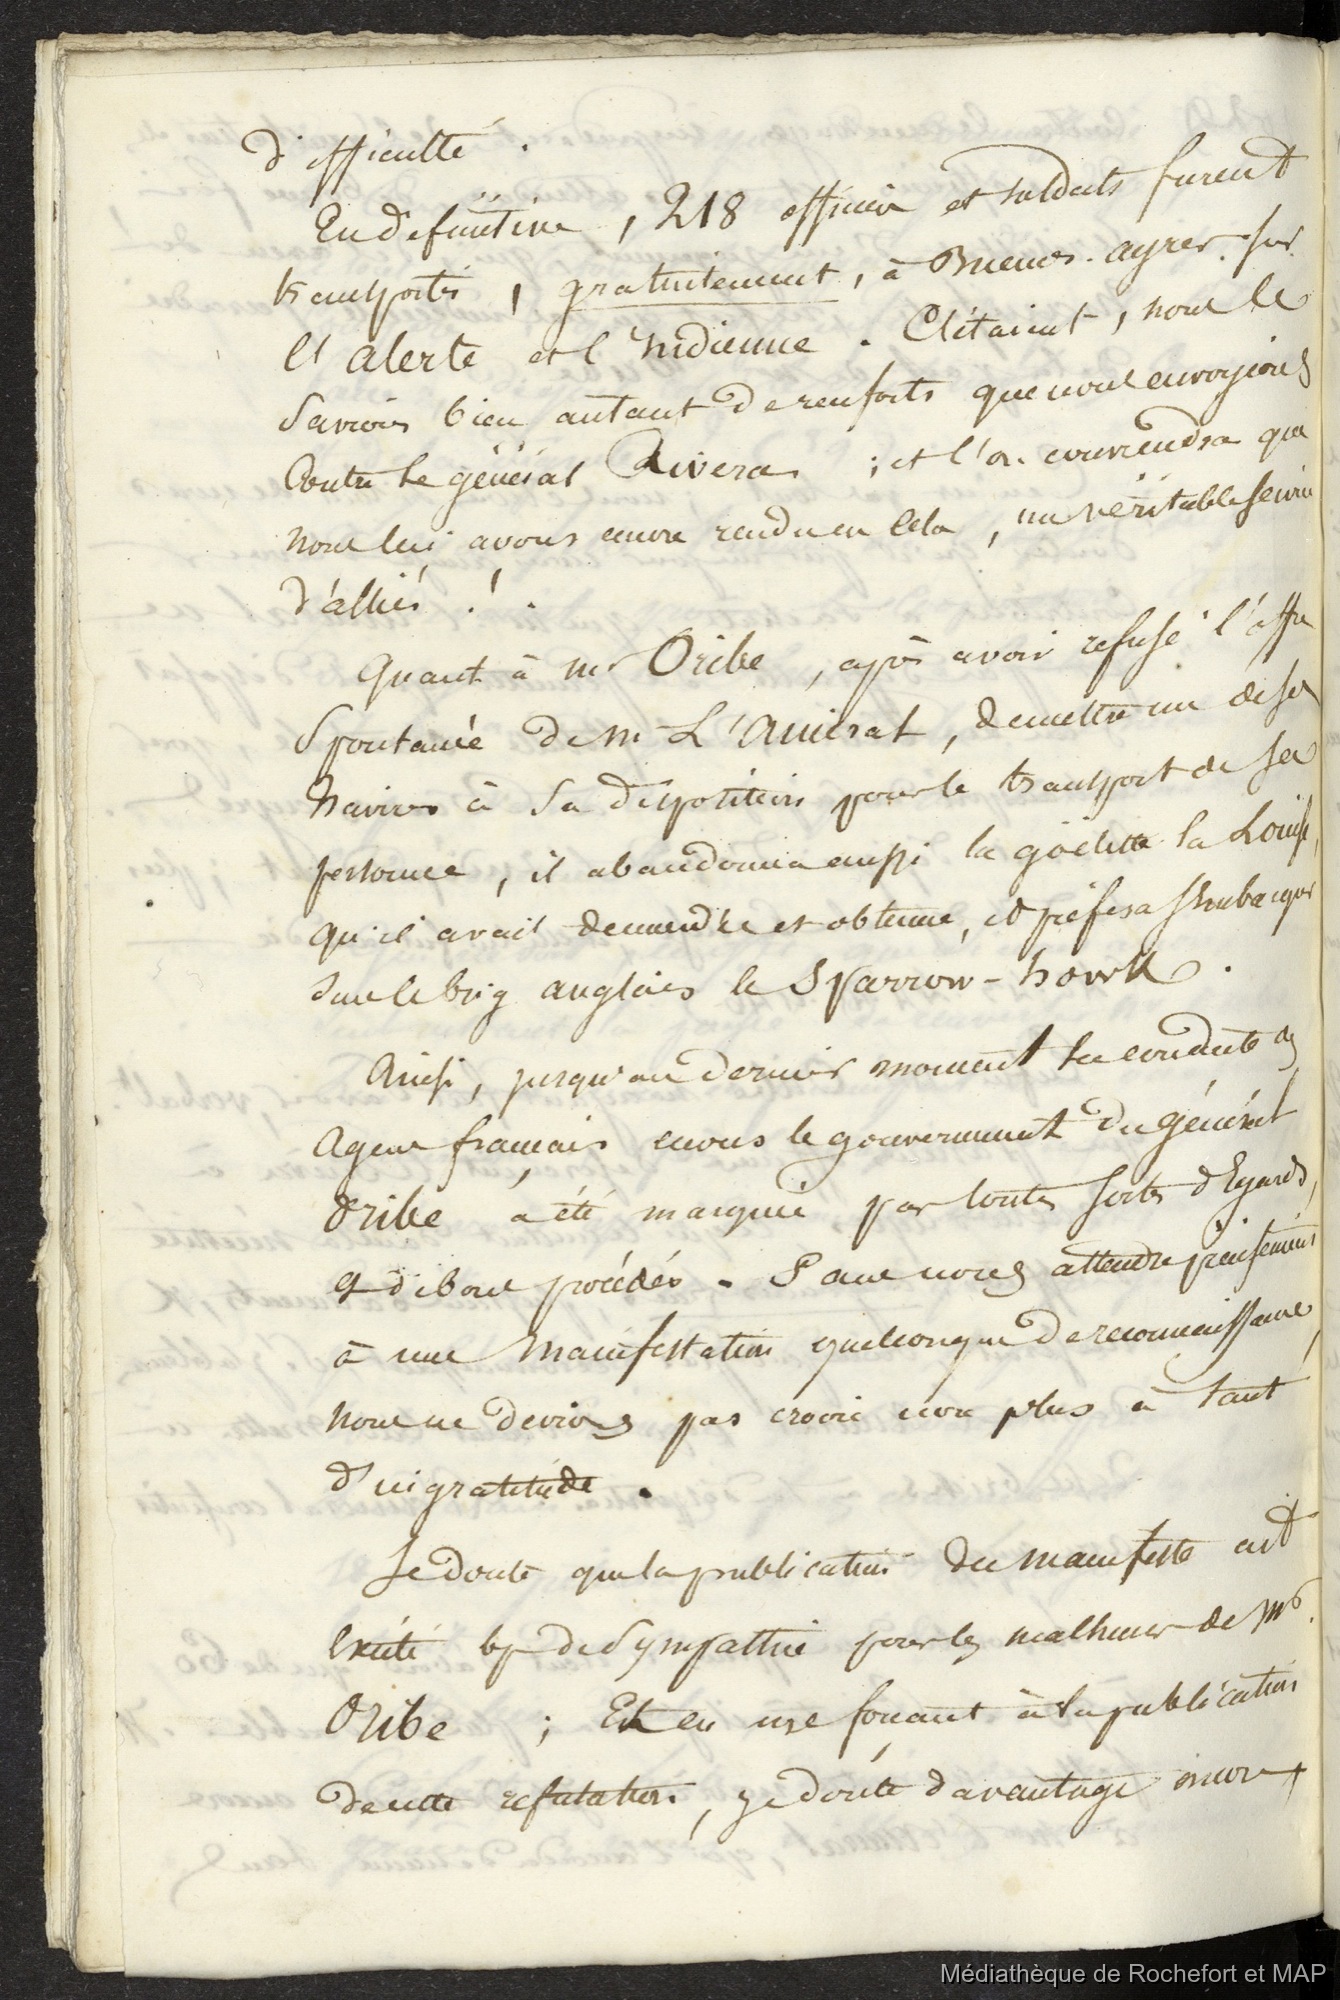 difficulté.
En définitive, 218 officiers et soldats furent
transportés, gratuitement, à Buenos-ayres sur
l'alerte et l'indienne. C'étaient, nous le
savions bien autant de renforts que nous envoyions
contre le général Rivera ; et l'on conviendra que
nous lui avons encore rendu en cela, un véritable service
d'alliés !.
Quant à mr Oribe, après avoir refusé l'offre
spontanée de mr L'Amiral, de mettre un de ses
navires à sa disposition pour le transport de sa
personne, il abandonna aussi la goëlette la Louise,
qu'il avait demandée et obtenue, et préféra s'embarquer
sur le brig anglais le Sparrow-howk.
Ainsi, jusqu'au dernier moment la conduite des
agens français envers le gouvernement du général
Oribe a été marquée par toutes sortes d'Egards,
et de bons procédés. Sans nous attendre précisément
à une manifestation quelconque de reconnaissance,
nous ne devions pas croire non plus à tant
d'ingratitude.
Je doute que la publication du manifeste ait
excité bp de sympathie pour les malheurs de Mr.
Oribe ; Et en me forçant à la publication
de cette refutation, je doute davantage encore
Médiathèque de Rochefort et MAP